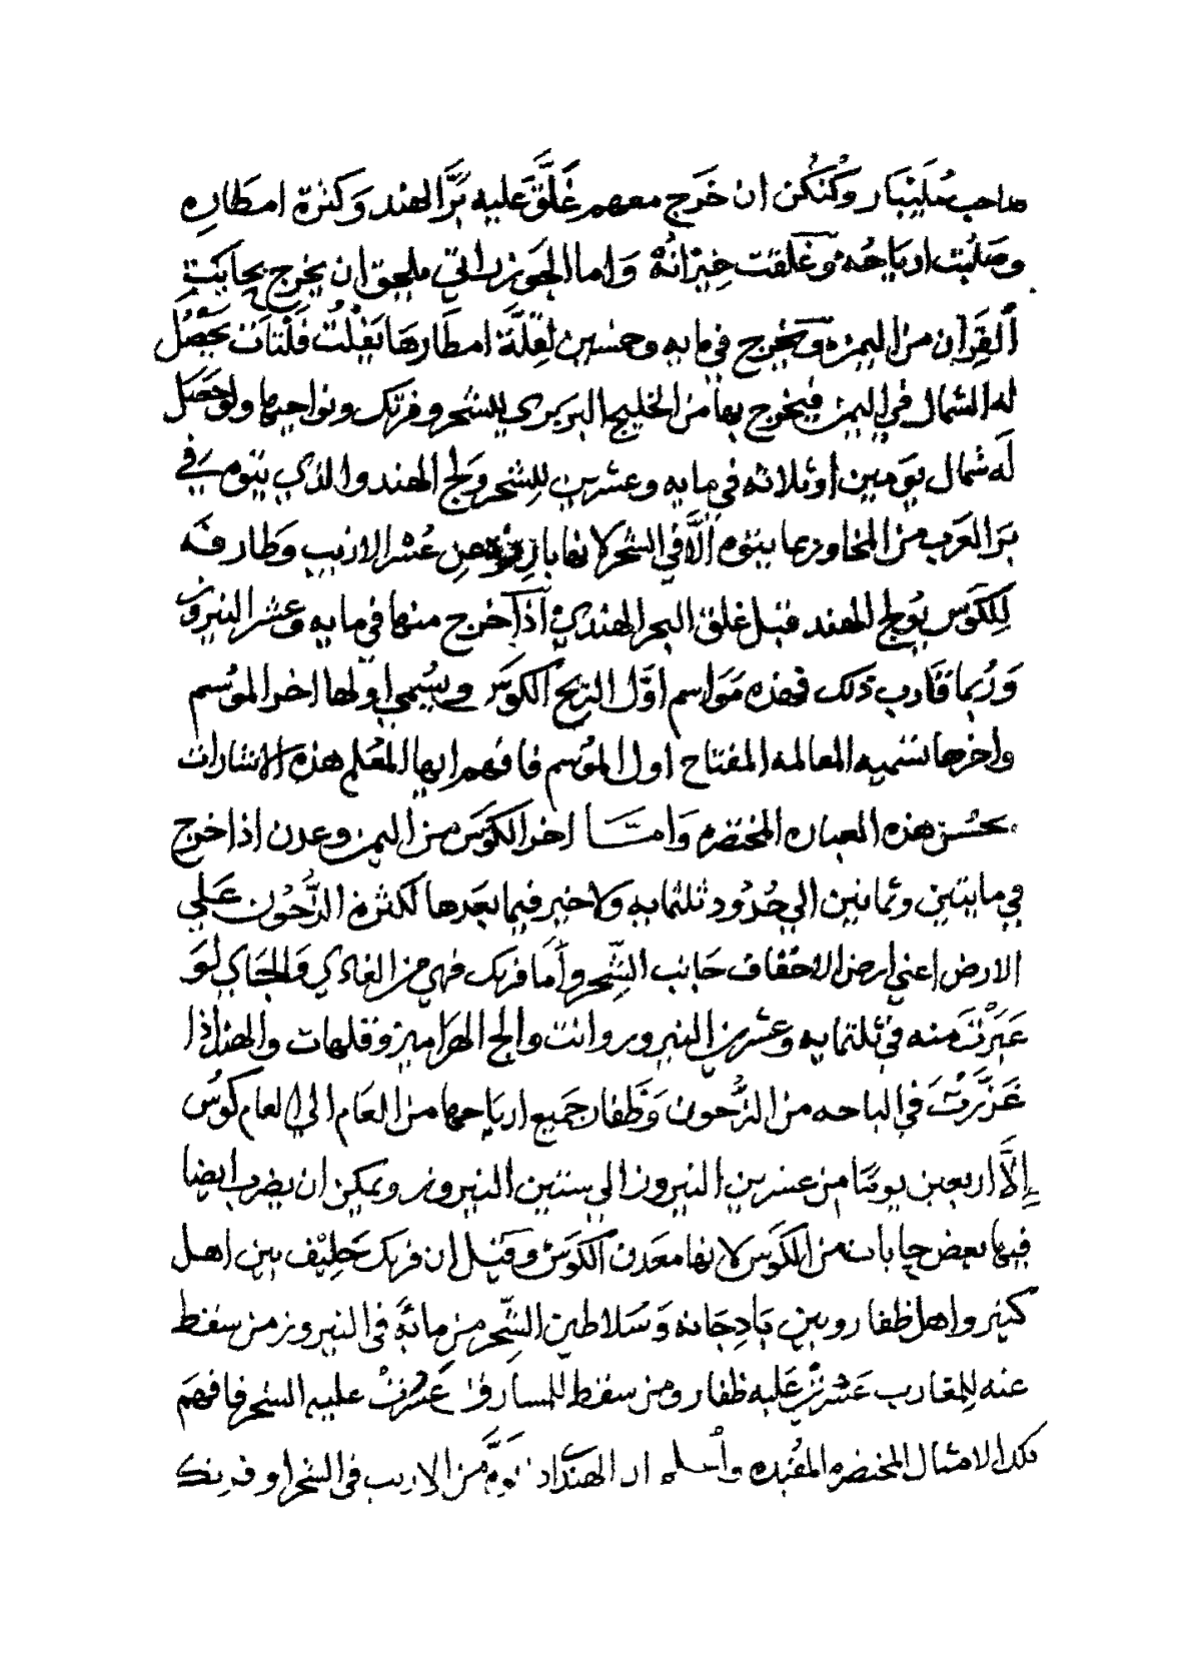 صاحب مليبار وكنكن ان خرج معهم غلق عليه برّ الهند وكثرة امطاره
وصلبت ارياحه وغلقت خيرانه واما الجوزراتي ملحق ان يخرج بجايت
القران من اليمن ويخرج في مايه وخمسين لقلّة امطارها بغلت فلتات يحصل
له الشمال في اليمن فيخرج بها من الخليج البربري للشحر وفرتك ونواحيها ولو حصل
له شمال يومين او ثلاثه في مايه وعشرين للشحر ولج الهند والذي يتوم في
بر العرب من المخا وربما يتوم الّا في الشحر لانها بارزة من عشر الازيب وطارفه
للكوس يولج الهند قبل غلق البحر الهندي اذا خرج منها في مايه وعشر النيروز
وربما قارب ذلك فهذه مواسم اوّل الريح الكوس ويسمي اولها اخر الموسم
واخرها تسميه المعالمه المفتاح اول الموسم فافهم ايها المعلم هذه الاشارات
بحسن هذه العباره المختصره وامــا اخر الكوس من اليمن وعدن اذا خرج
في مايتين وثمانين الي حدود ثلثمايه ولا خير فيما بعدها لكثرة الزّحون علي
الارض اعني ارض الاحقاف جانب الشّحر وأما فرتك فهي من الغادي والجاي لو
عبرت منه في ثلثمايه وعشرين النيروز وانت والج الهراميز وقلهات والهند اذا
غزّرت في الباحه من الزّحون وظفار جميع ارياحها من العام الي العام كوس
إلّا اربعين يومًا من عشرين النيروز الي ستين النيروز ويمكن ان يضرب ايضا
فيها بعض جابات من الكوس لانها معدن الكوس وقيل ان فرتك حليف بين اهل
كثير واهل ظفار وبين بادجانه وسلاطين الشّحر من مائة في النيروز من سقط
عنه للمغارب عشرت عليه ظفار ومن سقط للمسارق عسرت عليه الشحر فافهم
تلك الامثال المختصره المفيده واعلم ان الهند اذ توّم من الازيب في الشحر او فرتك